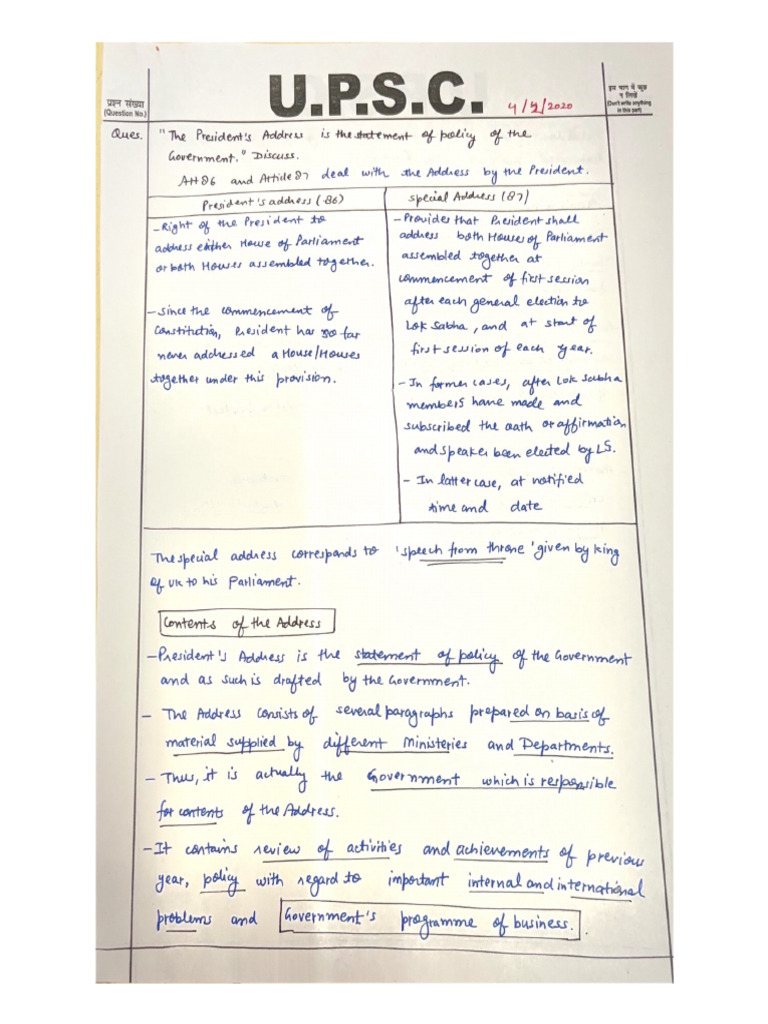 U.P.S.C.
4/2/2020
प्रश्न संख्या
(Question No.)
इस भाग में कुछ
न लिखें
(Don't write anything
in this part)
Ques. "The President's Address is the statement of policy of the
Government." Discuss.
Art 86 and Article 87 deal with the Address by the President.
President's address (86)
- Right of the President to
address either House of Parliament
or both Houses assembled together.
- Since the commencement of
Constitution, President has so far
never addressed a House/Houses
together under this provision.
Special Address (87)
- Provides that President shall
address both Houses of Parliament
assembled together at
commencement of first session
after each general election to
Lok Sabha, and at start of
first session of each year.
- In former cases, after Lok Sabha
members have made and
subscribed the oath or affirmation
and speaker been elected by LS.
- In latter case, at notified
time and date
The special address corresponds to 'speech from throne' given by king
of UK to his Parliament.
Contents of the Address
- President's Address is the statement of policy of the Government
and as such is drafted by the Government.
- The Address consists of several paragraphs prepared on basis of
material supplied by different Ministeries and Departments.
- Thus, it is actually the Government which is responsible
for contents of the Address.
- It contains review of activities and achievements of previous
year, policy with regard to important internal and international
problems and Government's programme of business.